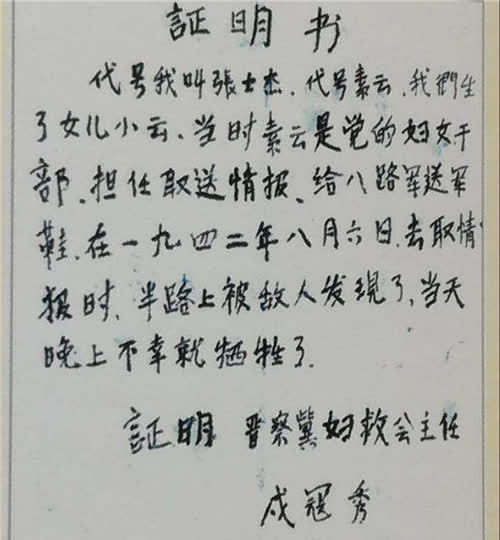 証明书
代号我叫張士杰．代号素云．我們生
了女儿小云、当时素云是党的妇女干
部、担任取送情报、给八路军送军
鞋．在一九四二年八月六日．去取情
报时、半路上被敌人发现了，当天
晚上不幸就牺牲了．
証明 晋察冀妇救会主任
戎冠秀